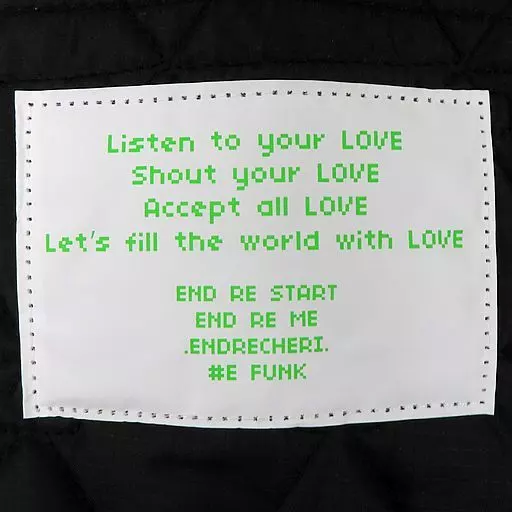 Listen to your LOVE
Shout your LOVE
Accept all LOVE
Let's fill the world with LOVE
END RE START
END RE ME
.ENDRECHERI.
#E FUNK